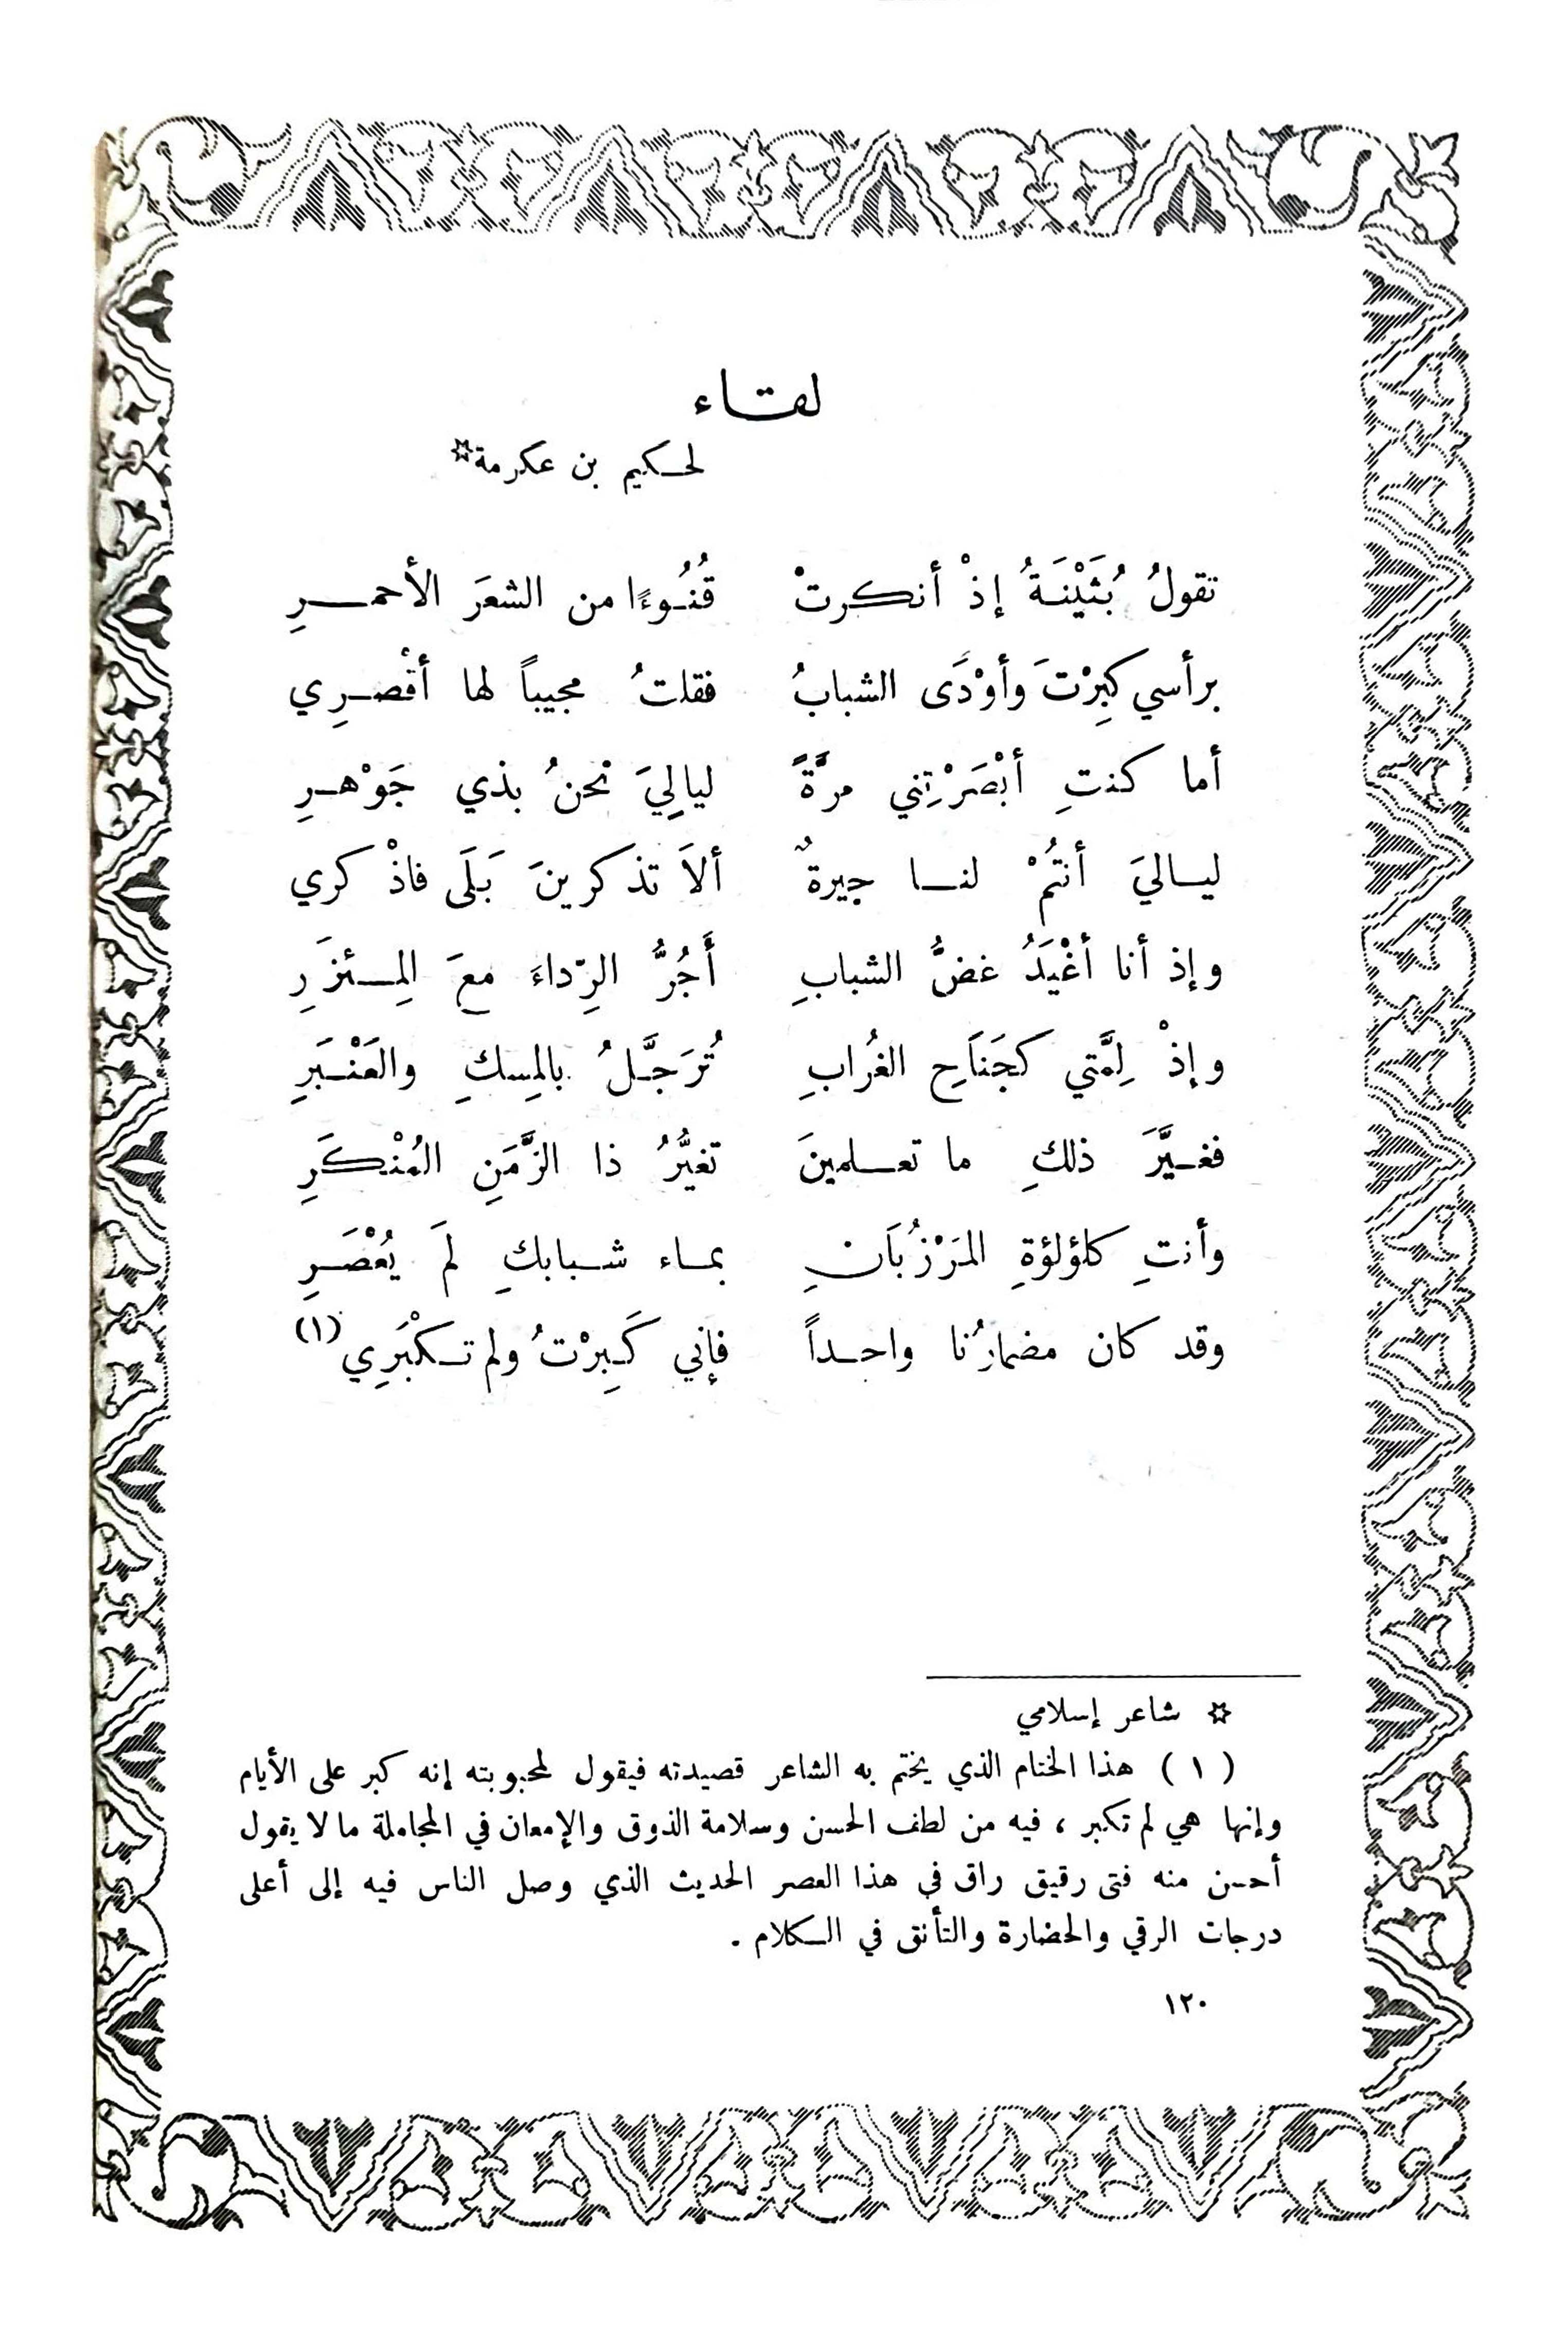 لقاء
لحكيم بن عكرمة☆
تقولُ بُثَيْنَةُ إذْ أنكرتْ قُنُوءًا من الشعَرَ الأحمرِ
برأسي كبِرْتَ وأوْدَى الشبابُ فقلتُ مجيباً لها أقْصرِي
أما كنتِ أبْصَرْتِني مرَّةً لياليَ نحنُ بذي جَوْهرِ
لياليَ أنتُمْ لنا جيرةٌ ألاَ تذكرينَ بَلَى فاذْكري
وإذ أنا أغْيَدُ غضُّ الشبابِ أَجُرُّ الرِّداءَ معَ المِئزَرِ
وإذْ لِمَّتي كجَنَاحِ الغُرابِ تُرَجَّلُ بالمِسكِ والعَنْبَرِ
فغيَّرَ ذلكِ ما تعلمينَ تغيُّرُ ذا الزَّمَنِ المُنْكَرِ
وأنتِ كلؤلؤةِ المَرْزُبَانِ بماء شبابكِ لَم يُعْصَرِ
وقد كان مضمارُنا واحداً فإني كَبِرْتُ ولم تكْبَرِي (١)
☆ شاعر إسلامي
( ١ ) هذا الختام الذي يختم به الشاعر قصيدته فيقول لمحبوبته إنه كبر على الأيام
وإنها هي لم تكبر ، فيه من لطف الحسن وسلامة الذوق والإمعان في المجاملة ما لا يقول
أحسن منه فتى رقيق راق في هذا العصر الحديث الذي وصل الناس فيه إلى أعلى
درجات الرقي والحضارة والتأنق في الكلام .
١٢٠